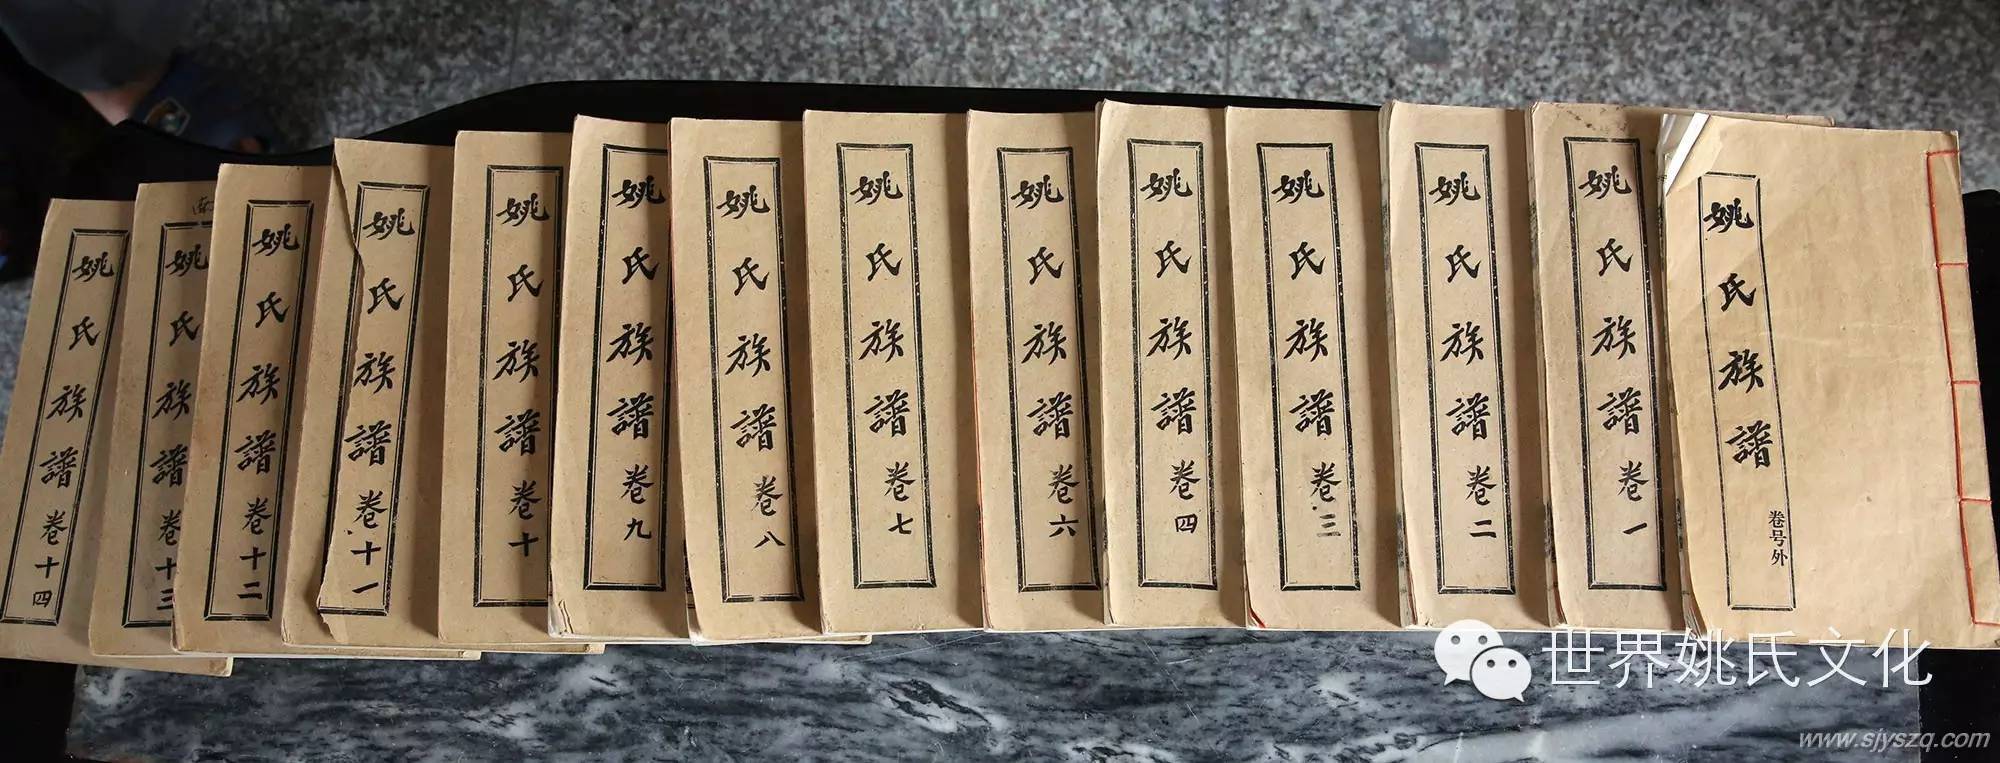 姚氏族譜
卷号外
姚氏族譜 卷一
姚氏族譜 卷二
姚氏族譜 卷三
姚氏族譜 卷四
姚氏族譜 卷六
姚氏族譜 卷七
姚氏族譜 卷八
姚氏族譜 卷九
姚氏族譜 卷十
姚氏族譜 卷十一
姚氏族譜 卷十二
姚氏族譜 卷十三
姚氏族譜 卷十四
世界姚氏文化
www.sjyszq.com